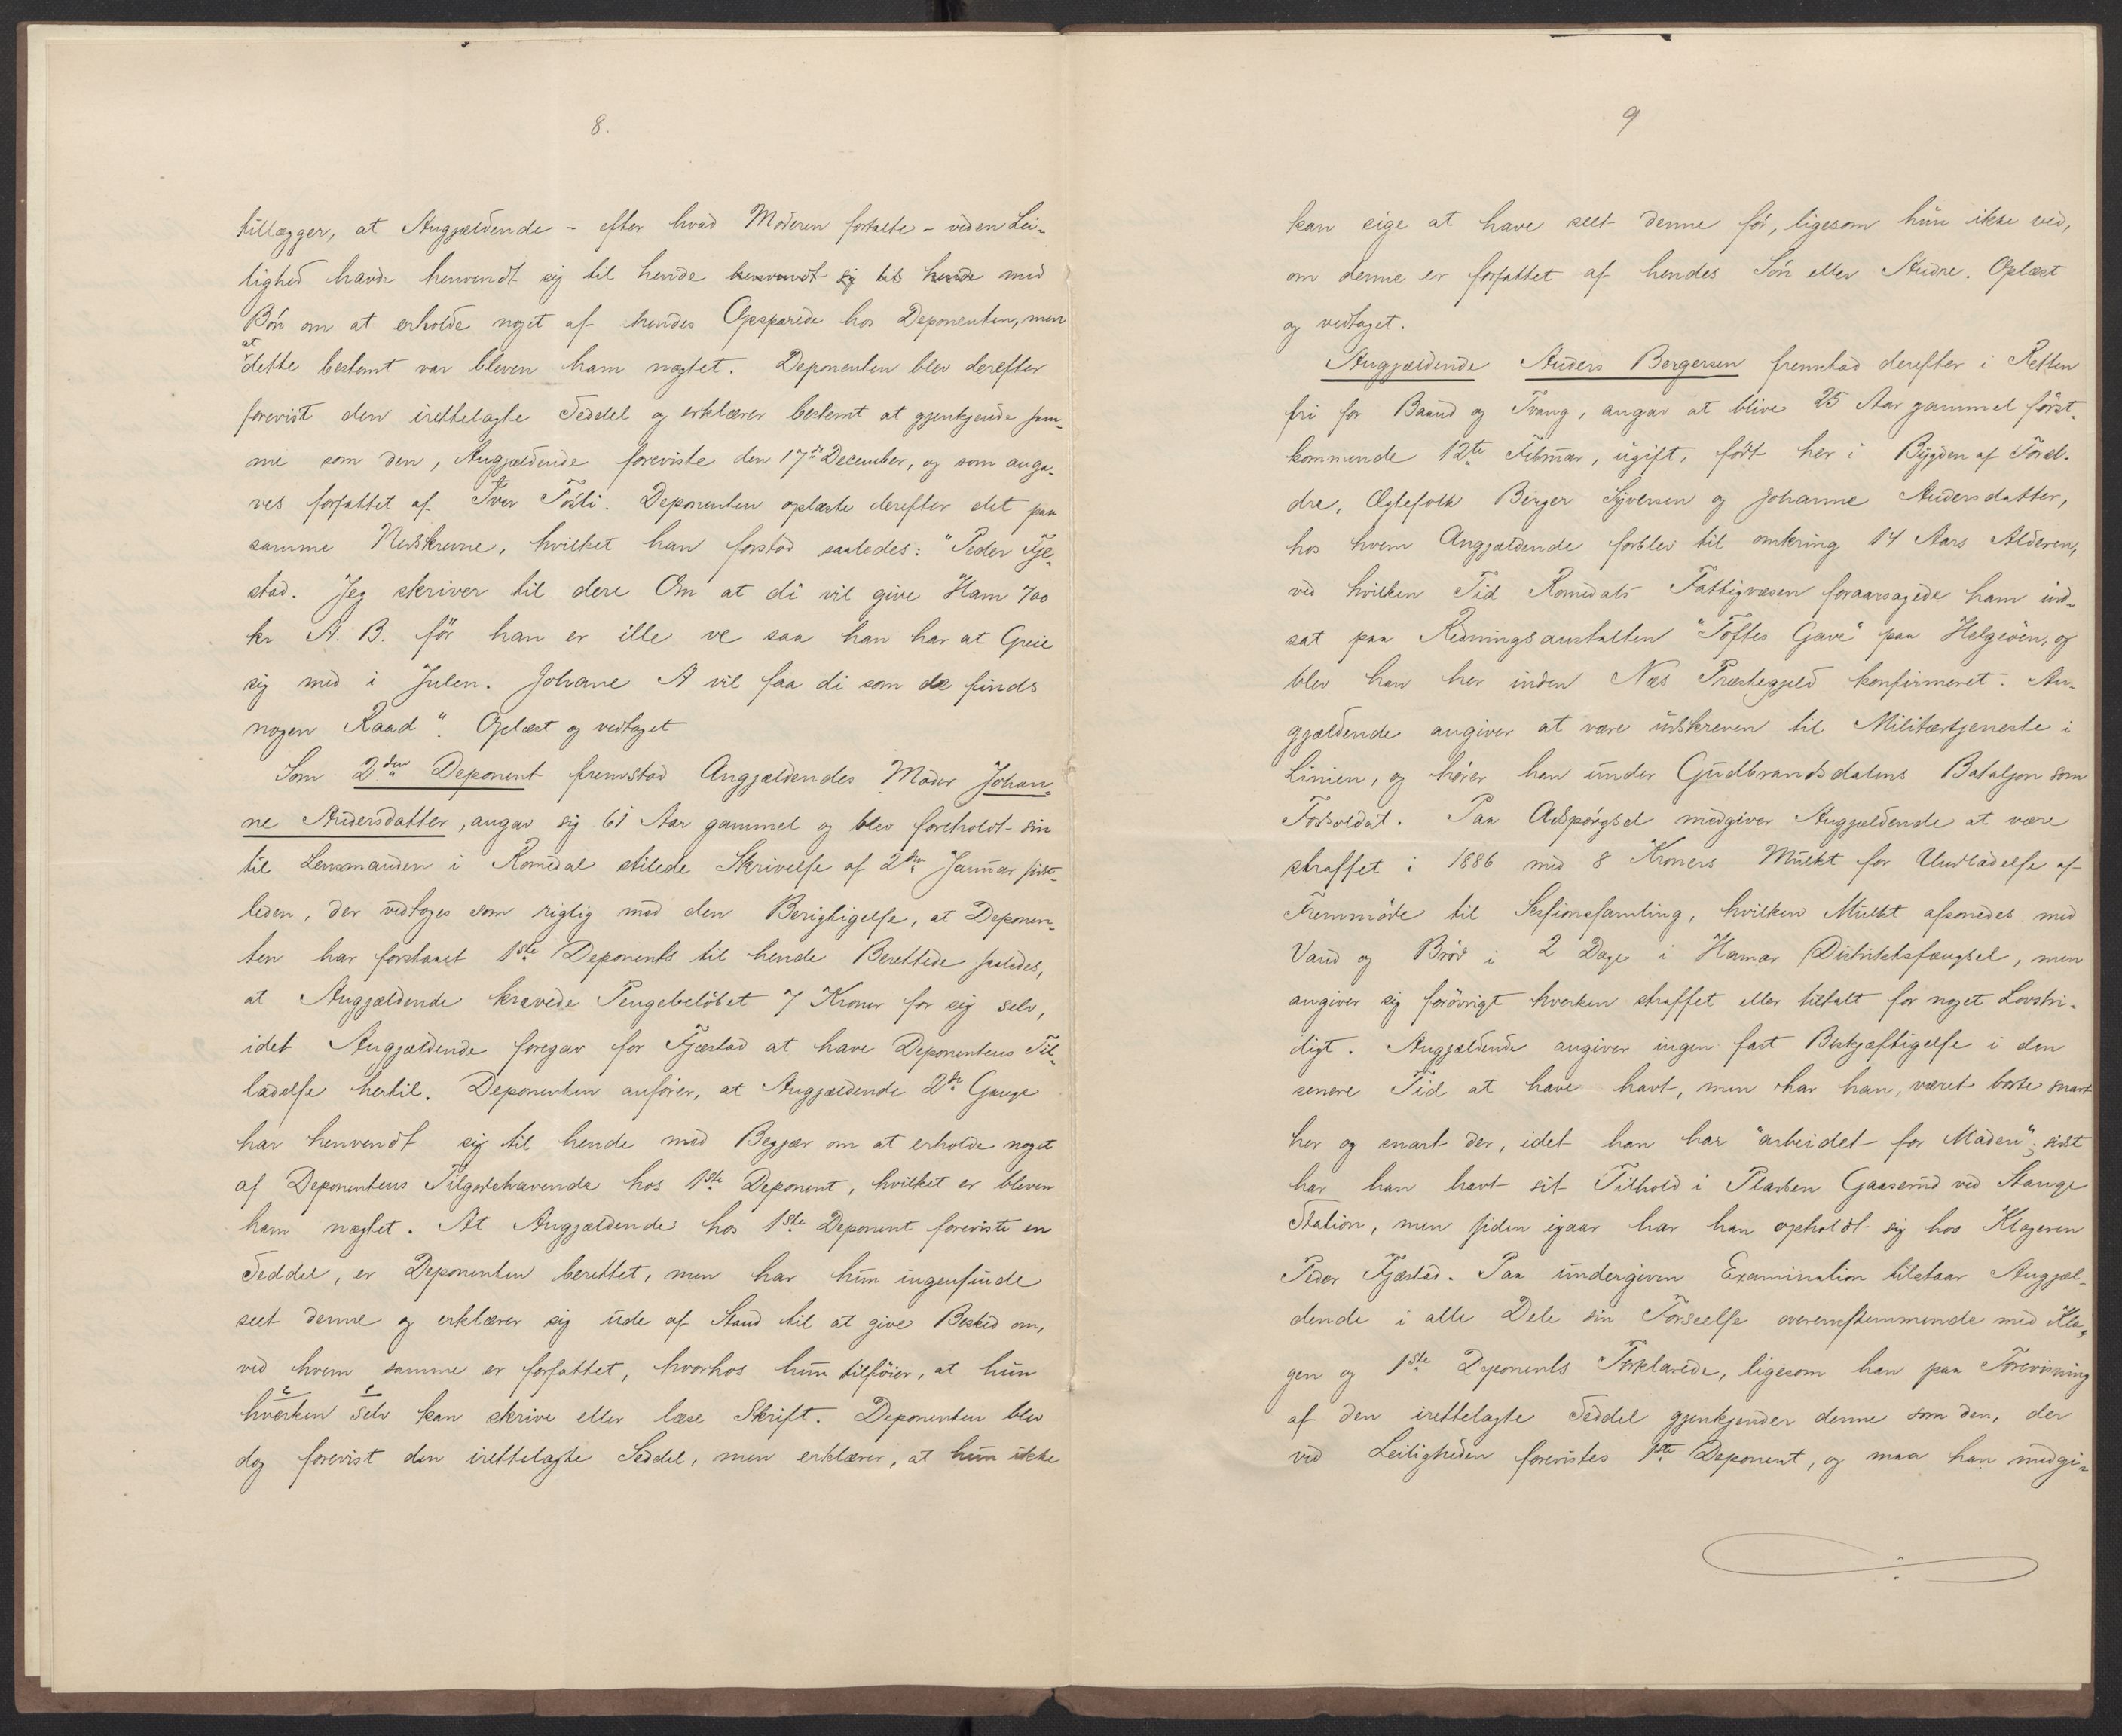 8.
tillægger, at Angjældende – efter hvad Moderen fortalte – ved en Lei-
lighed havde henvendt sig til hende henvendt sig til hende med
Bön om at erholde noget af hendes Opsparede hos Deponenten, men
at
dette bestemt var bleven ham nægtet. Deponenten blev derefter
forevist den irettelagte Seddel og erklærer bestemt at gjenkjende sam-
me som den, Angjældende foreviste den 17de December, og som anga-
ves forfattet af Iver Tösti. Deponenten oplæste derefter det paa
samme Nedskrevne, hvilket han forstod saaledes: "Peder Fje-
stad. Jeg skriver til dere Om at di vil give Ham 700
kr A. B. för han er ille ve saa han har at Greie
sig med i Julen. Johane A vil faa di som de finds
nogen Raad". Oplæst og vedtaget
Som 2den Deponent fremstod Angjældendes Moder Johan-
ne Andersdatter, angav sig 61 Aar gammel og blev foreholdt sin
til Lensmanden i Romedal stilede Skrivelse af 2den Januar sidst-
leden, der vedtoges som rigtig med den Berigtigelse, at Deponen-
ten har forstaaet 1ste Deponents til hende Berettede saaledes,
at Angjældende krævede Pengebelöbet 7 Kroner for sig selv,
idet Angjældende foregav for Fjæstad at have Deponentens Til-
ladelse hertil. Deponenten anfører, at Angjældende 2de Gange
har henvendt sig til hende med Begjær om at erholde noget
af Deponentens Tilgodehavende hos 1ste Deponent, hvilket er bleven
ham nægtet. At Angjældende hos 1ste Deponent foreviste en
Seddel, er Deponenten berettet, men har hun ingensinde
seet denne og erklærer sig ude af Stand til at give Besked om,
ved hvem samme er forfattet, hvorhos hun tilföier, at hun
hverken selv kan skrive eller læse Skrift. Deponenten blev
dog forevist den irettelagte Seddel, men erklærer, at hun ikke
9
kan sige at have seet denne för, ligesom hun ikke ved,
om denne er forfattet af hendes Sön eller Andre. Oplæst
og vedtaget.
Angjældende Anders Bergersen fremstod derefter i Retten
fri for Baand og Tvang, angav at blive 25 Aar gammel först-
kommende 12te Februar, ugift, födt her i Bygden af Foræl-
dre, Ægtefolk Berger Syversen og Johanne Andersdatter,
hos hvem Angjældende forblev til omkring 14 Aars Alderen,
ved hvilken Tid Romedals Fattigvæsen foraarsagede ham ind-
sat paa Redningsanstalten "Toftes Gave" paa Helgeöen, og
blev han her inden Næs Præstegjeld konfirmeret. An-
gjældende angiver at være udskreven til Militærtjeneste i
Linien, og hører han under Gudbrandsdalens Bataljon som
Fodsoldat. Paa Adspørgsel medgiver Angjældende at være
straffet i 1886 med 8 Kroners Mulkt for Undladelse af
Fremmöde til Sessionssamling, hvilken Mulkt afsonedes med
Vand og Bröd i 2 Dage i Hamar Distriktsfængsel, men
angiver sig forövrigt hverken straffet eller tiltalt for noget Lovstri-
digt. Angjældende angiver ingen fast Beskjæftigelse i den
senere Tid at have havt, men har han været borte snart
her og snart der, idet han har "arbeidet for Maden"; sidst
har han havt sit Tilhold i Pladsen Gaaserud ved Stange
Station, men siden igaar har han opholdt sig hos Klageren
Peder Fjæstad. Paa undergiven Examination tilstaar Angjæl-
dende i alle Dele sin Forseelse overensstemmende med Kla-
gen og 1ste Deponents Forklarede, ligesom han paa Forevisning
af den irettelagte Seddel gjenkjender denne som den, der
ved Leiligheden forevistes 1ste Deponent, og maa han medgi-